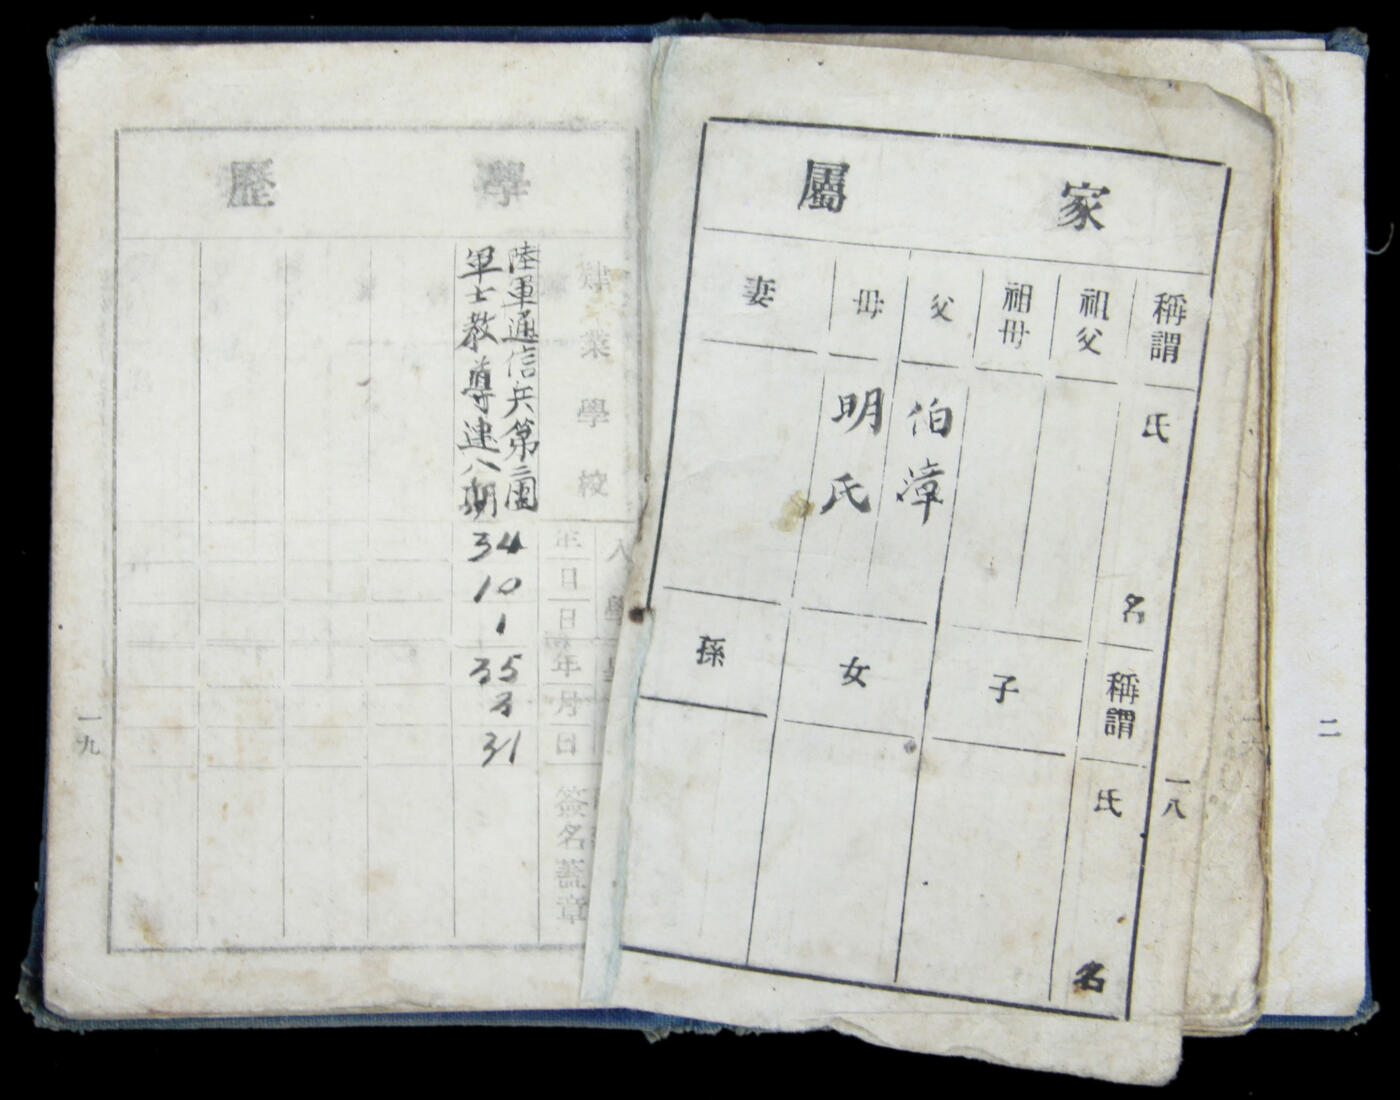 家屬
稱謂
氏名
祖父
祖母
父
伯漳
母
明氏
妻
稱謂
氏名
子
女
孫
一八
二
學歷
肄業學校
入學
年
日
日
年
月
日
簽名蓋章
陸軍通信兵第二團
軍士教導連八期
34
10
1
35
3
31
一九